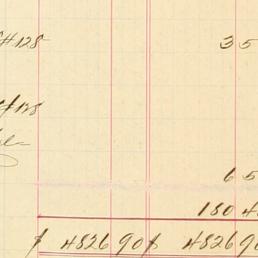 #128 35
#128
65
180 4
$ 4826 90 $ 4826 9